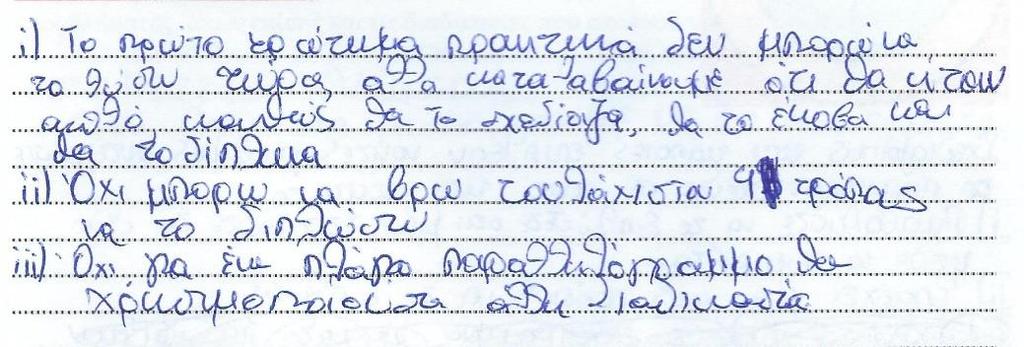 i) Το πρώτο ερώτημα πρακτικά δεν μπορώ να
το λύσω τώρα, αλλά καταλαβαίνουμε ότι θα ήταν
απλό, καθώς θα το σχεδίαζα, θα το έκοβα και
θα το δίπλωνα
ii) Όχι μπορώ να βρω τουλάχιστον 4 τρόπους
να το διπλώσω
iii) Όχι για ένα πλάγιο παραλληλόγραμμο θα
χρησιμοποιούσα άλλη διαδικασία